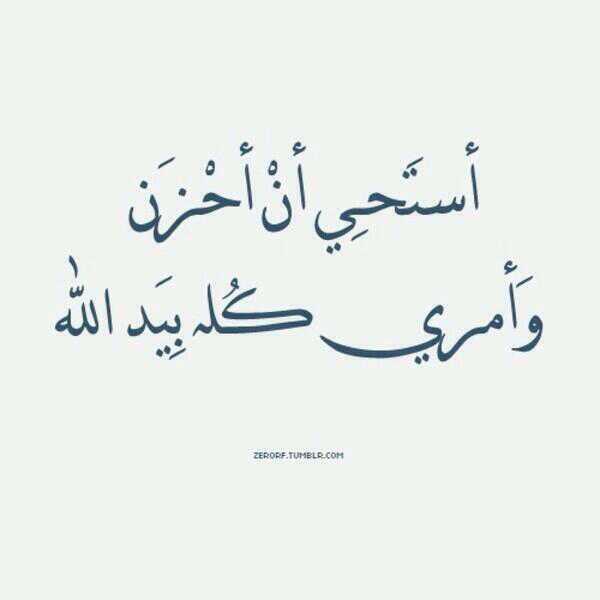 أستَحيِ أنْ أحْزنَ
وَأمري كُله بِيَد الله
ZERORF.TUMBLR.COM